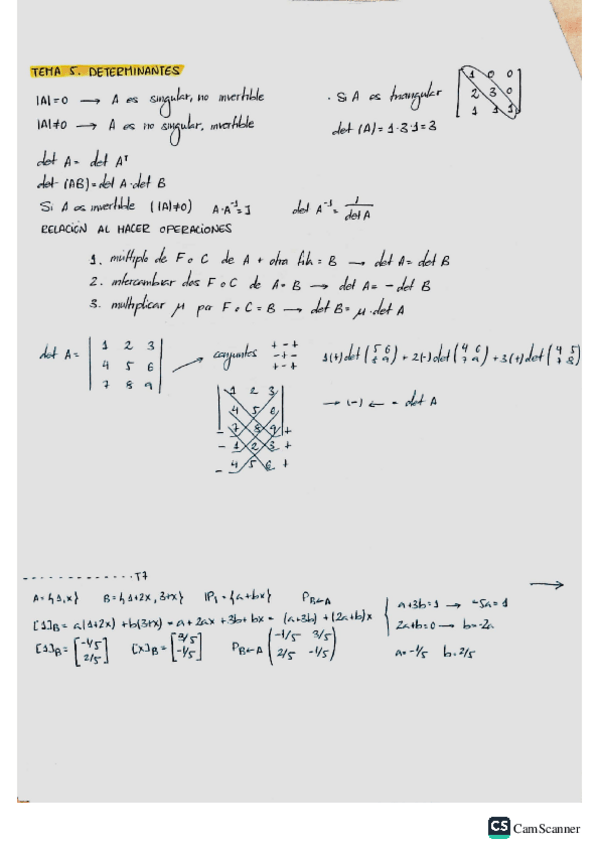 TEMA 5. DETERMINANTES
|A|=0 → A es singular, no invertible
|A|≠0 → A es no singular, invertible
· Si A es triangular
1 0 0
2 3 0
1 1 1
det (A)= 1·3·1=3
det A = det Aᵀ
det (AB) = det A · det B
Si A es invertible (|A|≠0) A·A⁻¹=I det A⁻¹ = 1/det A
RELACIÓN AL HACER OPERACIONES
1. múltiplo de F o C de A + otra fila = B → det A = det B
2. intercambiar dos F o C de A = B → det A = - det B
3. multiplicar μ por F o C = B → det B = μ · det A
det A =
1 2 3
4 5 6
7 8 9
→ conjuntos
+ - +
- + -
+ - +
1(+)det(5 6 / 8 9) + 2(-)det(4 6 / 7 9) + 3(+)det(4 5 / 7 8)
1 2 3
4 5 6
- 7 8 9 +
- 1 2 3 +
- 4 5 6 +
→ (-) ← = det A
- - - - - - - - - - - - - T7
A={1,x} B={1+2x, 3+x} P₁={a+bx} P_B←A
[1]_B = a(1+2x) + b(3+x) = a + 2ax + 3b + bx = (a+3b) + (2a+b)x
a+3b=1 → -5a=1
2a+b=0 → b=-2a
[1]_B = [-1/5 2/5] [x]_B = [3/5 -1/5] P_B←A (-1/5 3/5 / 2/5 -1/5)
a=-1/5 b=2/5
CS CamScanner